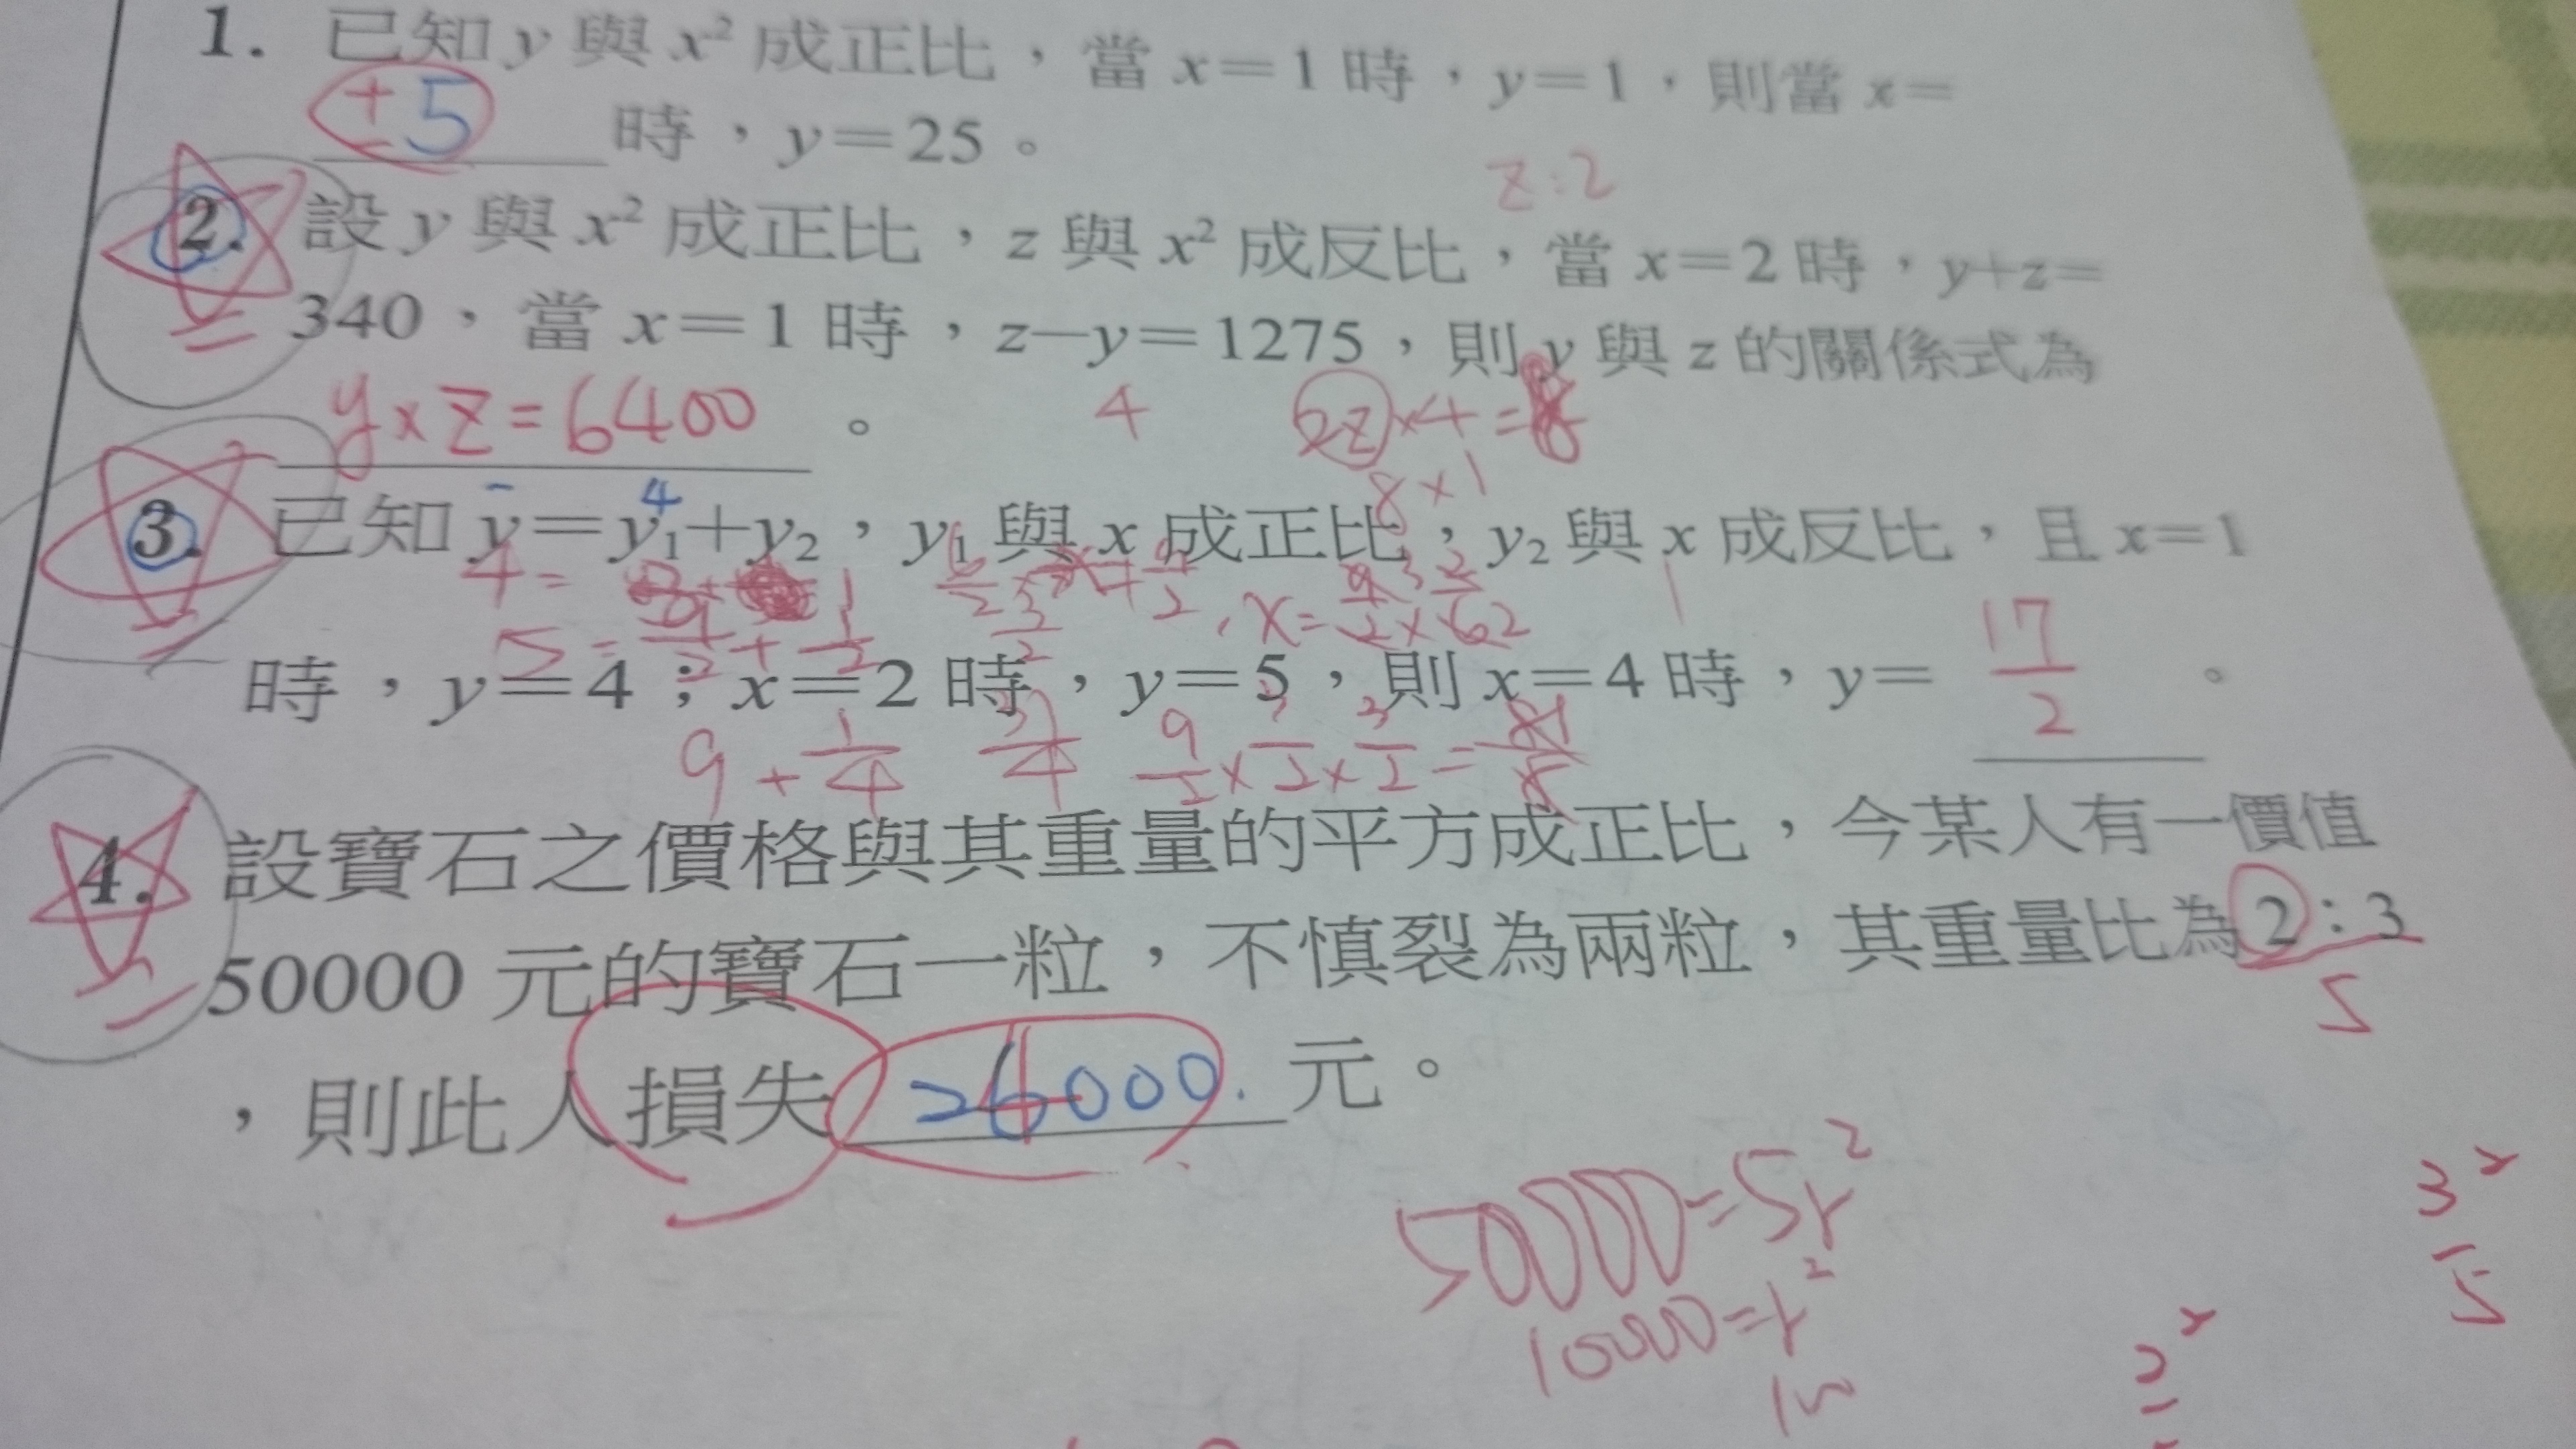 1. 已知 y 與 x² 成正比，當 x=1 時，y=1，則當 x=
±5 時，y=25。
z:2
2. 設 y 與 x² 成正比，z 與 x² 成反比，當 x=2 時，y+z=
340，當 x=1 時，z−y=1275，則 y 與 z 的關係式為
y×z=6400。 4
8×1
3. 已知 y=y₁+y₂，y₁ 與 x 成正比，y₂ 與 x 成反比，且 x=1
時，y=4；x=2 時，y=5，則 x=4 時，y= 17/2。
9+1/4
4. 設寶石之價格與其重量的平方成正比，今某人有一價值
50000 元的寶石一粒，不慎裂為兩粒，其重量比為 2：3
5
，則此人損失 元。
50000=5r²
10000=r²